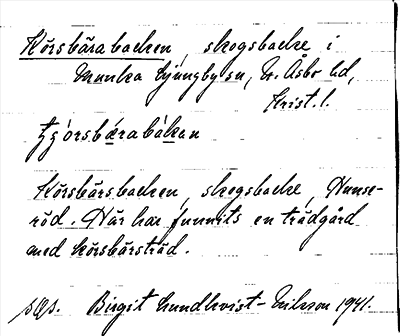 Körsbärabacken, skogsbacke i
Munka Ljungby sn, N. Åsbo hd,
Krist. l.
tȿórsbærabákan
Körsbärsbacken, skogsbacke, Hunse-
röd. Här har funnits en trädgård
med körsbärsträd.
Birgit Lundkvist-Nilsson 1941.